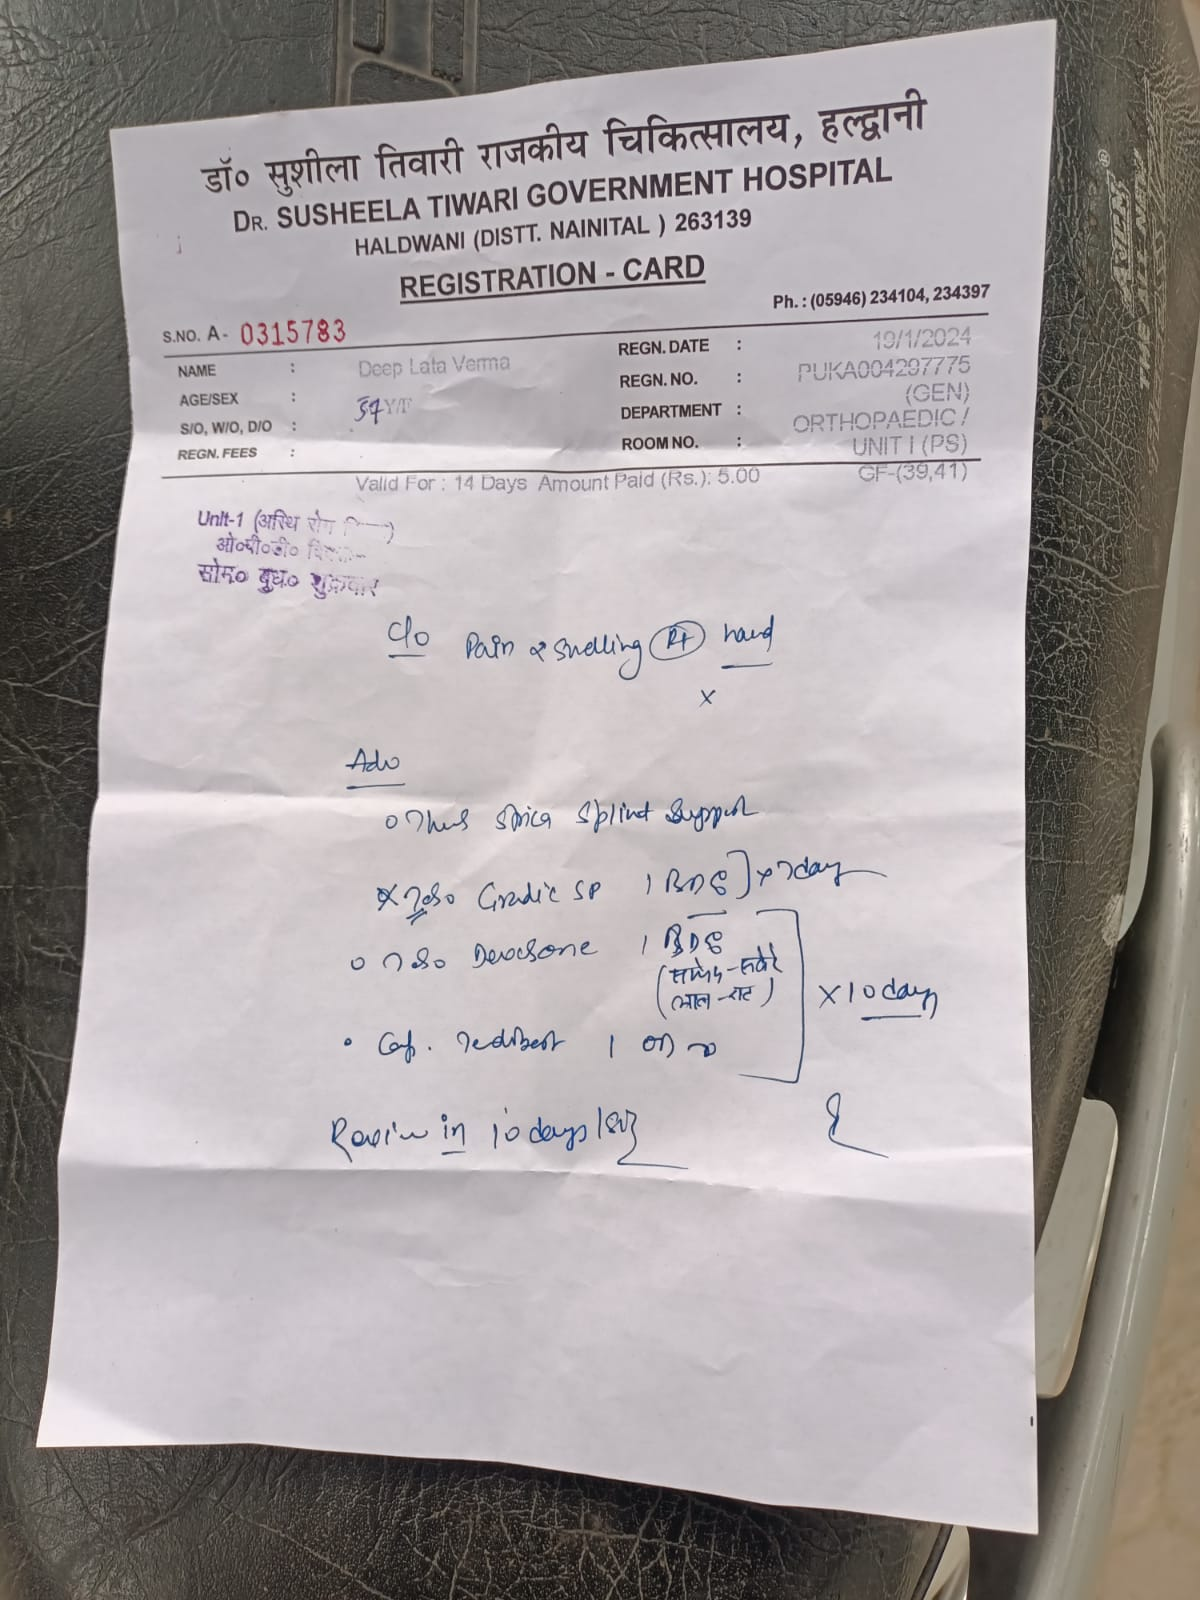 डॉ० सुशीला तिवारी राजकीय चिकित्सालय, हल्द्वानी
DR. SUSHEELA TIWARI GOVERNMENT HOSPITAL
HALDWANI (DISTT. NAINITAL ) 263139
REGISTRATION - CARD
Ph. : (05946) 234104, 234397
S.NO. A- 0315783
NAME : Deep Lata Verma
AGE/SEX : 37Y/F
S/O, W/O, D/O :
REGN. FEES :
REGN. DATE : 19/1/2024
REGN. NO. : PUKA004297775
(GEN)
DEPARTMENT : ORTHOPAEDIC /
UNIT I (PS)
ROOM NO. : GF-(39,41)
Valid For : 14 Days Amount Paid (Rs.): 5.00
Unit-1 (अस्थि रोग
ओ०पी०डी०
सोम० बुध० शुक्रवार
C/o Pain & Swelling Rt hand
x
Adv
Spica Splint Support
SP 1 BD x 7 day
1 BD
x 10 days
Cap. 1 OD
Review in 10 days
AJEN®
THE ALL NEW